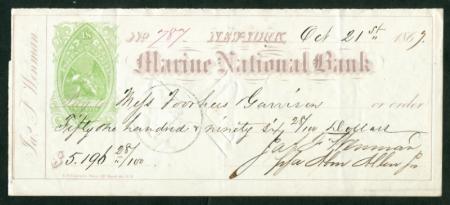 No 787. NEW-YORK Oct 21st 1869.
Marine National Bank
Mess Voorhees Garrison or order
Fifty one hundred & ninety six 28/100 Dollars
$5.196 28/100
Jas T Wenman
Jas T. Wenman